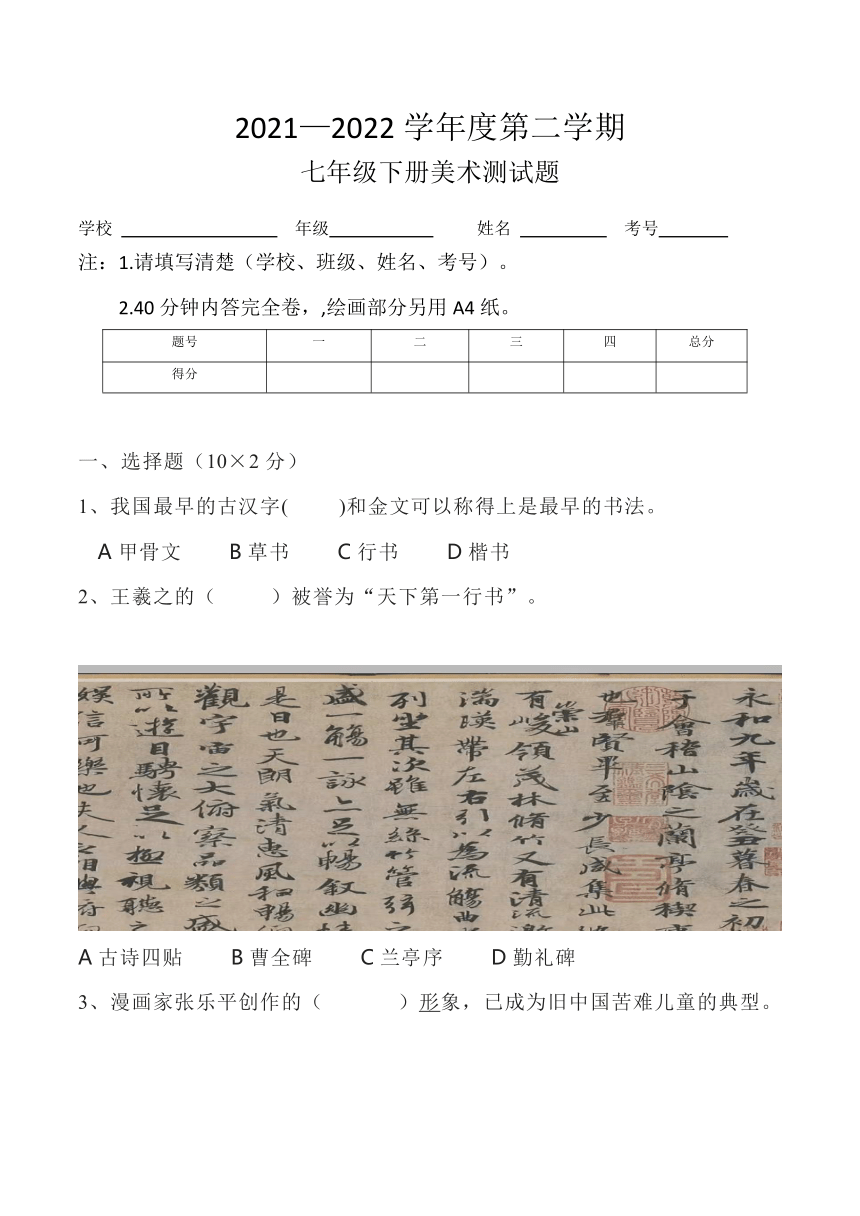 2021—2022 学年度第二学期
七年级下册美术测试题
学校 年级 姓名 考号
注：1.请填写清楚（学校、班级、姓名、考号）。
2.40 分钟内答完全卷，,绘画部分另用 A4 纸。
题号 一 二 三 四 总分
得分
一、选择题（10×2 分）
1、我国最早的古汉字( )和金文可以称得上是最早的书法。
A 甲骨文 B 草书 C 行书 D 楷书
2、王羲之的（ ）被誉为“天下第一行书”。
永和九年歲在癸丑暮春之初
于會稽山陰之蘭亭脩稧
也羣賢畢至少長咸集此
有崇山峻領茂林脩竹又有清流激
湍暎帶左右引以為流觴曲
列坐其次雖無絲竹管弦之
盛一觴一詠亦足以暢叙幽情
是日也天朗氣清惠風和暢仰
觀宇宙之大俯察品類之盛
所以遊目騁懷足以極視聽之
娛信可樂也夫人之相與
A 古诗四贴 B 曹全碑 C 兰亭序 D 勤礼碑
3、漫画家张乐平创作的（ ）形象，已成为旧中国苦难儿童的典型。